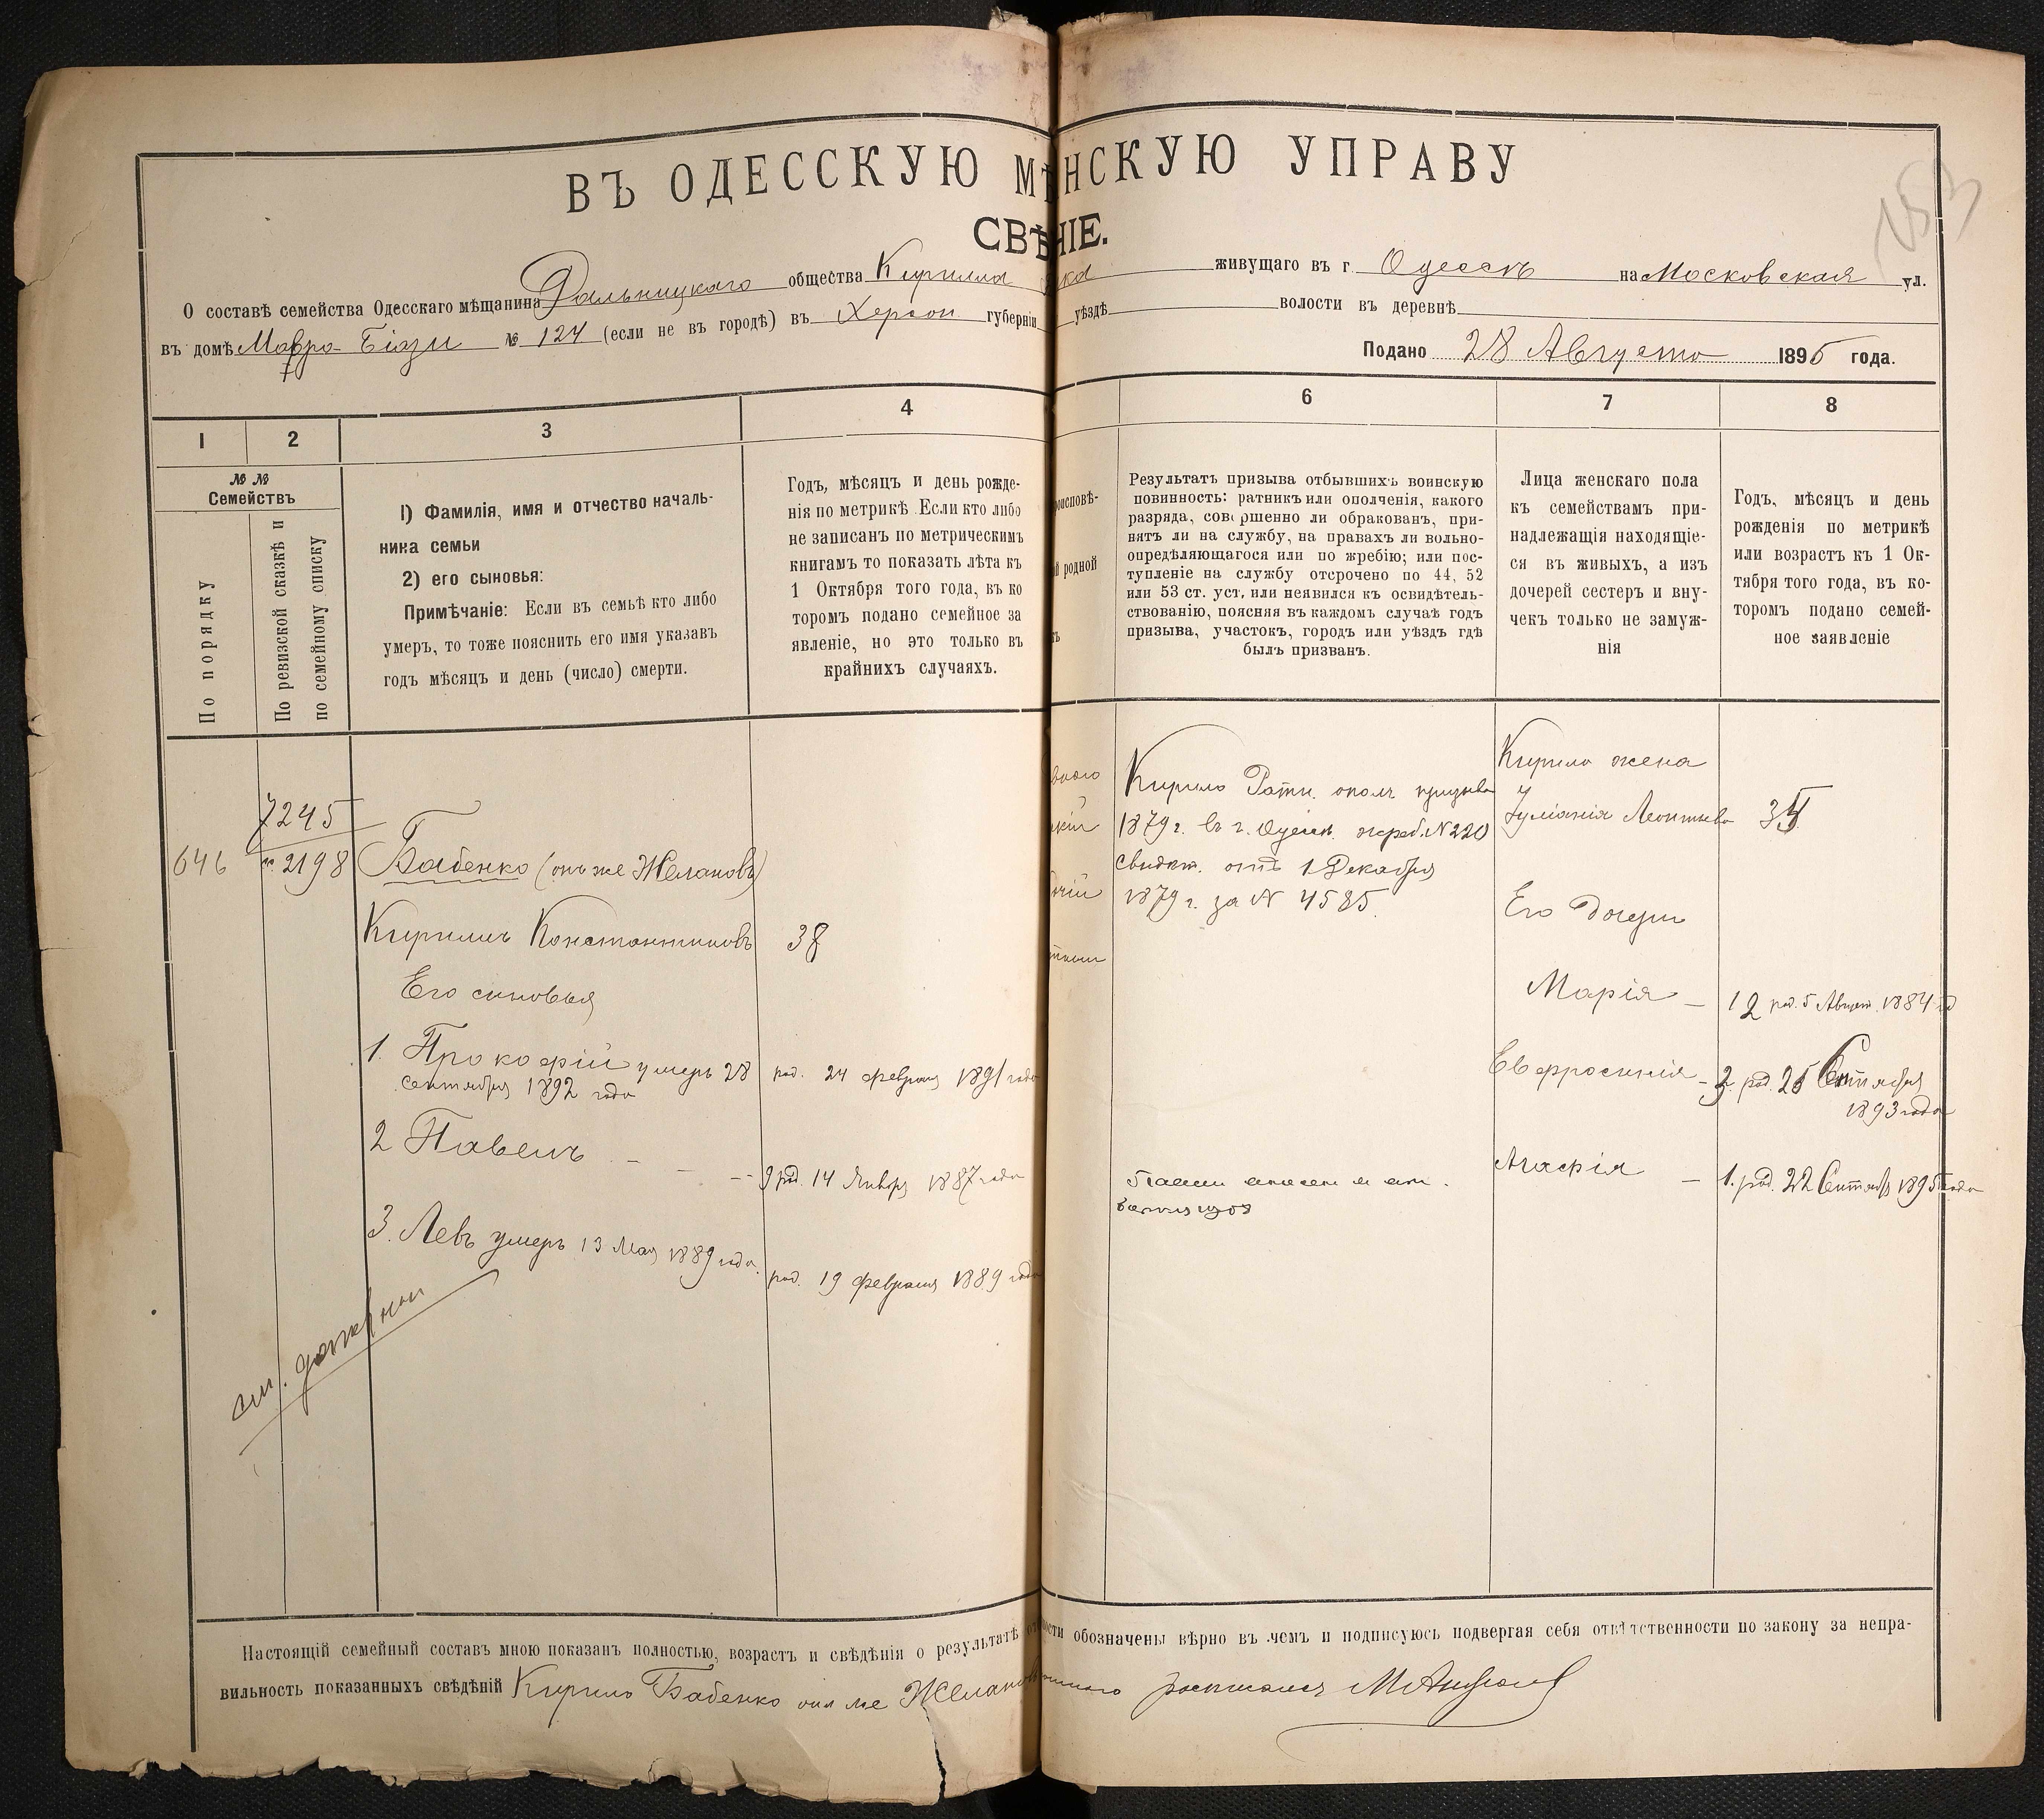 ВЪ ОДЕССКУЮ МѢ НСКУЮ УПРАВУ
СВѢ НІЕ.
153
О составѣ семейства Одесскаго мѣщанина Дальницкаго общества Кирилла живущаго въ г. Одессѣ на Московская ул.
въ домѣ Мавро-Біази № 124 (если не въ городѣ) въ Херсон губерніи уѣздѣ волости въ деревнѣ
Подано 28 Августа 1896 года.
1 2 3 4 6 7 8
№ №
Семействъ
По порядку
По ревизской сказкѣ и
по семейному списку
1) Фамилія, имя и отчество началь-
ника семьи
2) его сыновья:
Примѣчаніе: Если въ семьѣ кто либо
умеръ, то тоже пояснить его имя указавъ
годъ мѣсяцъ и день (число) смерти.
Годъ, мѣсяцъ и день рожде-
нія по метрикѣ. Если кто либо
не записанъ по метрическимъ
книгамъ то показать лѣта къ
1 Октября того года, въ ко
торомъ подано семейное за
явленіе, но это только въ
крайнихъ случаяхъ.
роисповѣ-
й родной
Результатъ призыва отбывшихъ воинскую
повинность: ратникъ или ополченія, какого
разряда, совершенно ли обракованъ, при-
нятъ ли на службу, на правахъ ли вольно-
опредѣляющагося или по жребію; или пос-
тупленіе на службу отсрочено по 44, 52
или 53 ст. уст, или неявился къ освидѣтель-
ствованію, поясняя въ каждомъ случаѣ годъ
призыва, участокъ, городъ или уѣздъ гдѣ
былъ призванъ.
Лица женскаго пола
къ семействамъ при-
надлежащія находящіе-
ся въ живыхъ, а изъ
дочерей сестеръ и вну-
чекъ только не замуж-
нія
Годъ, мѣсяцъ и день
рожденія по метрикѣ
или возрастъ къ 1 Ок-
тября того года, въ ко-
торомъ подано семей-
ное заявленіе
646
7245
2198
Бабенко (онъ же Желановъ)
Кириллъ Константиновъ 38
Его сыновья
1. Прокофій умеръ 28
сентября 1892 года
род. 24 февраля 1891 года
2 Павелъ - - -- 9 род. 14 Января 1887 года
3. Левъ умеръ 13 Мая 1889 года.
род. 19 февраля 1889 года
см.
Кирило Ратн. ополч призыва
1879 г. въ г. Одесѣ. жреб. N 220
свидѣт. отъ 1 Декабря
1879 г. за N 4585.
Кирила жена
Іуліанія Леонтьева 35
Его Дочери
Марія - 12 род. 5 Август. 1884 год
Евфросинія - 3. род. 25 Сентября
1893 года
Агафія - 1. род. 22 Сентяб 1895 года
Настоящій семейный составъ мною показанъ полностью, возрастъ и свѣдѣнія о результатѣ ости обозначены вѣрно въ чемъ и подписуюсь подвергая себя отвѣтственности по закону за непра-
вильность показанныхъ свѣдѣній Кирило Бабенко онъ же Желановъ росписался